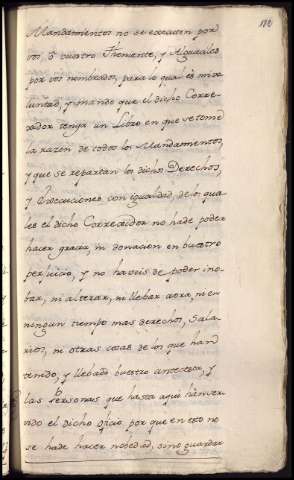 Mandamientos no se executen por
vos, ó vuestro Theniente, y Alguaciles
por vos nombrados, para lo qual es mi vo
luntad, y mando que el dicho Corre-
xidor tenga un Libro en que se tome
la razon de todos los Mandamientos,
y que se repartan los dichos Derechos,
y Execuciones con igualdad, de los qua-
les el dicho Correxidor no hade poder
hacer gracia, ni donacion en buestro
perjuicio, y no haveis de poder ino-
bar, ni alterar, ni llebar aora, ni en
ningun tiempo mas derechos, Sala-
rios, ni otras cosas de los que han
tenido, y llebado buestro antecesor, y
las Personas que hasta aqui han ser-
vido el dicho oficio por que en esto no
se hade hacer nobedad, sino guardar